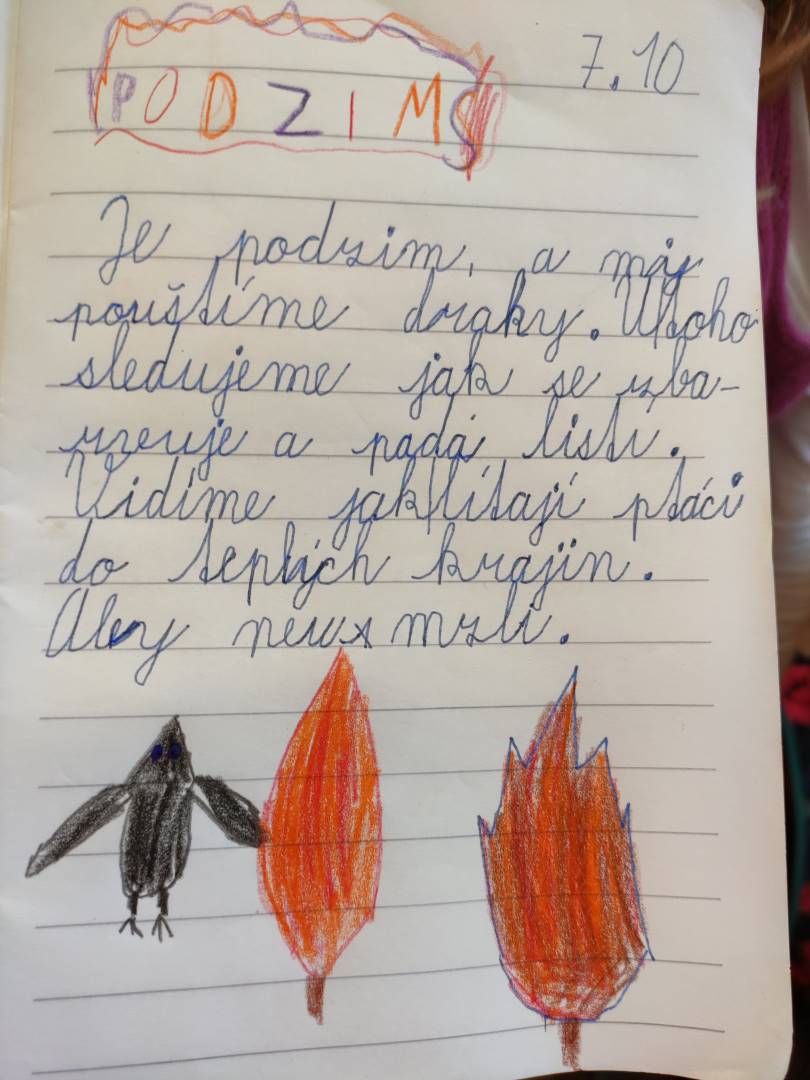 PODZIM
7.10
Je podzim, a my
pouštíme draky. U toho
sledujeme jak se zba-
rvuje a padá listí.
Vidíme jak lítají ptáci
do teplých krajin.
Aby mrzli.